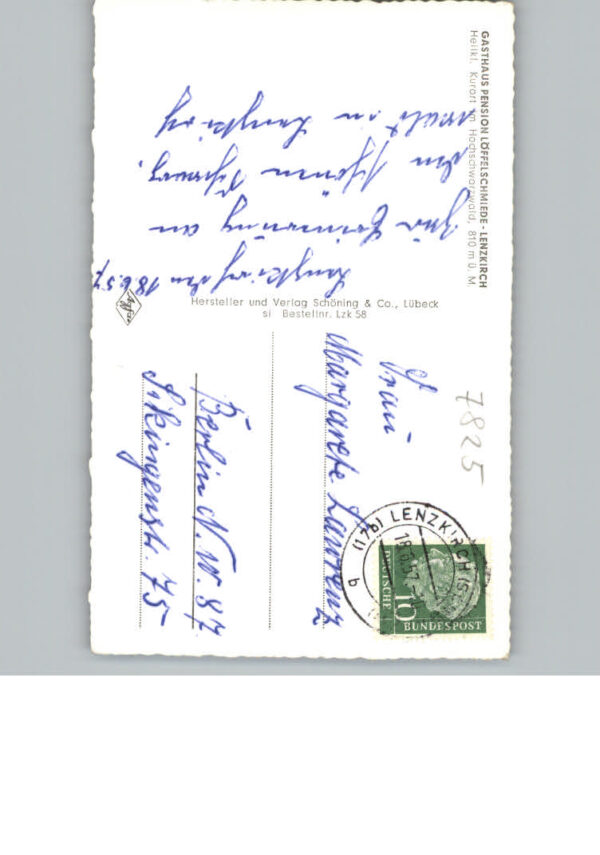 GASTHAUS PENSION LÖFFELSCHMIEDE - LENZKIRCH
Heilkl. Kurort im Hochschwarzwald, 810 m ü. M.
Lenzkirch den 18.6.57
Zur Erinnerung an
den schönen
in Lenzkirch
Hersteller und Verlag Schöning & Co., Lübeck
si Bestellnr. Lzk 58
Agfa
7825
Frau
Margarete Lawrenz
Berlin N.W. 87
Sikingenstr. 75
(17b) LENZKIRCH
b
DEUTSCHE
10
BUNDESPOST